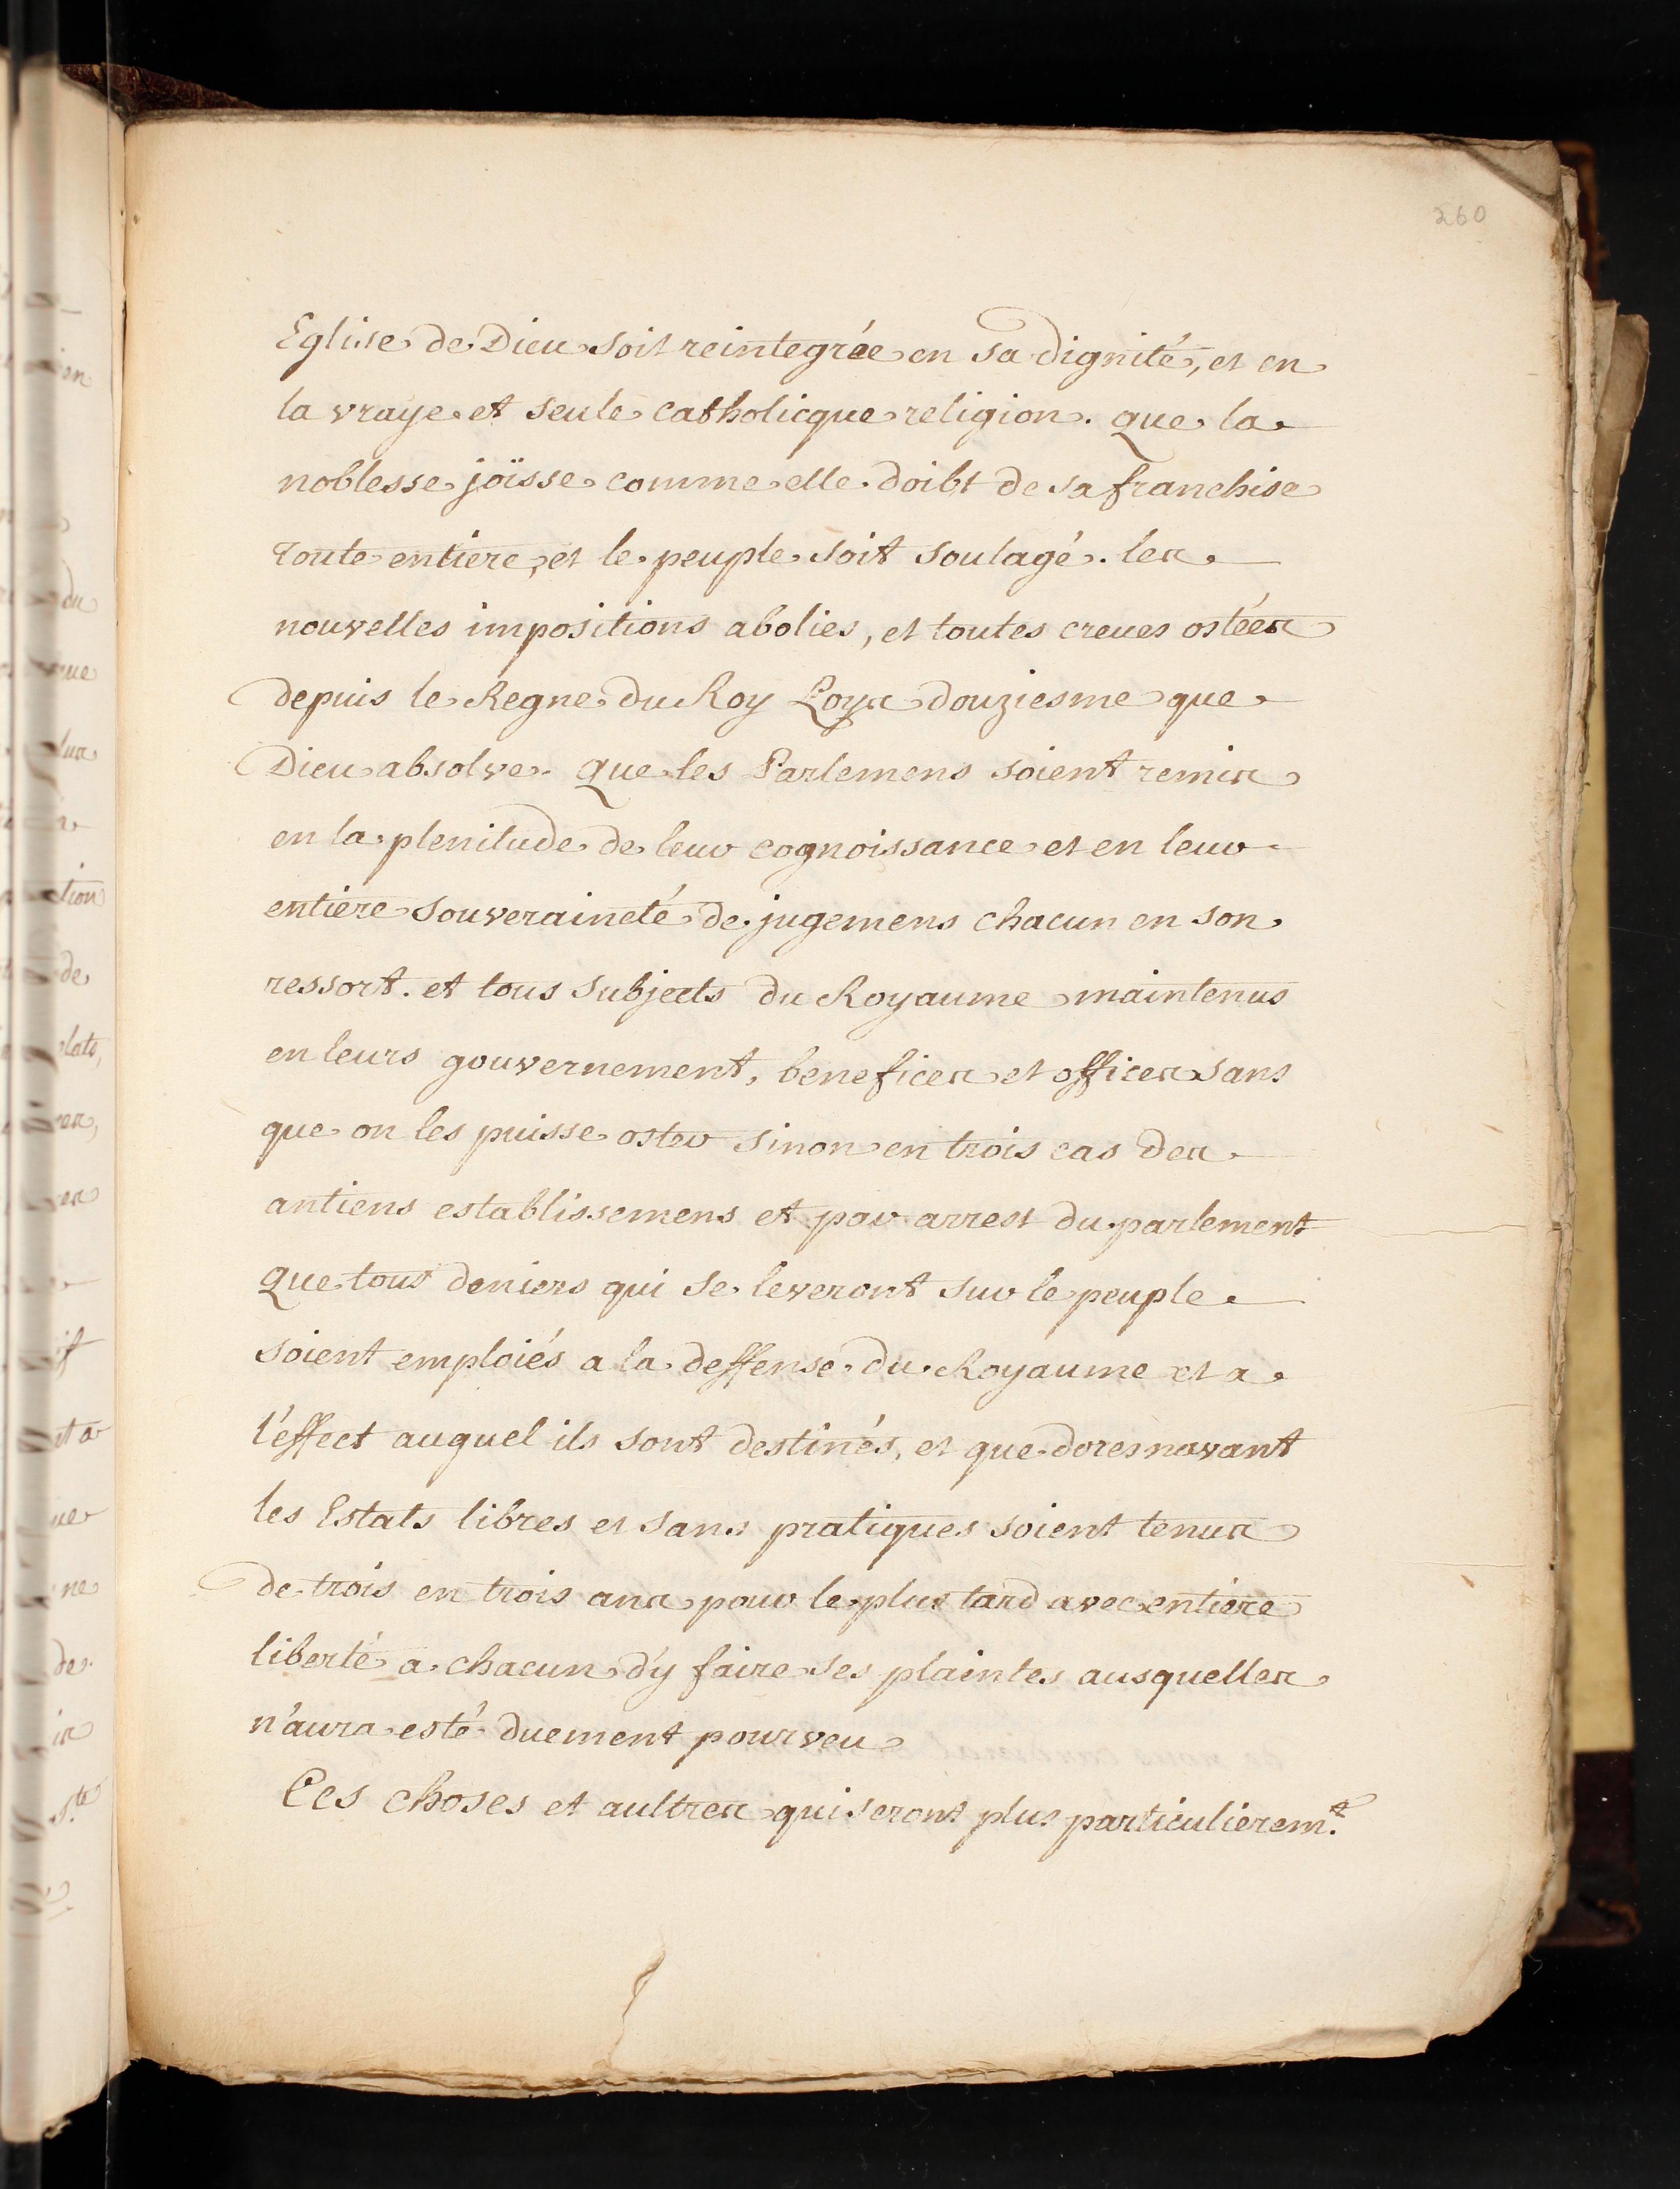 260
Eglise de Dieu soit reintegrée en sa dignité, et en
la vraye et seule catholicque religion. que la
noblesse joïsse comme elle doibt de sa franchise
toute entiere, et le peuple soit soulagé. les
nouvelles impositions abolies, et toutes creues ostées
depuis le Regne du Roy Loys douziesme que
Dieu absolve. que les Parlemens soient remis
en la plenitude de leur cognoissance et en leur
entiere souveraineté de jugemens chacun en son
ressort. et tous subjects du Royaume maintenus
en leurs gouvernement, benefices et offices sans
que on les puisse oster sinon en trois cas des
antiens establissemens et par arrest du parlement
que tous deniers qui se leveront sur le peuple
soient emploiés a la deffense du Royaume et a
l'effect auquel ils sont destinés, et que doresnavant
les Estats libres et sans pratiques soient tenus
de trois en trois ans pour le plus tard avec entiere
liberté a chacun d'y faire ses plaintes ausquelles
n'aura esté duement pourveu
Ces choses et aultres qui seront plus particulierem.t